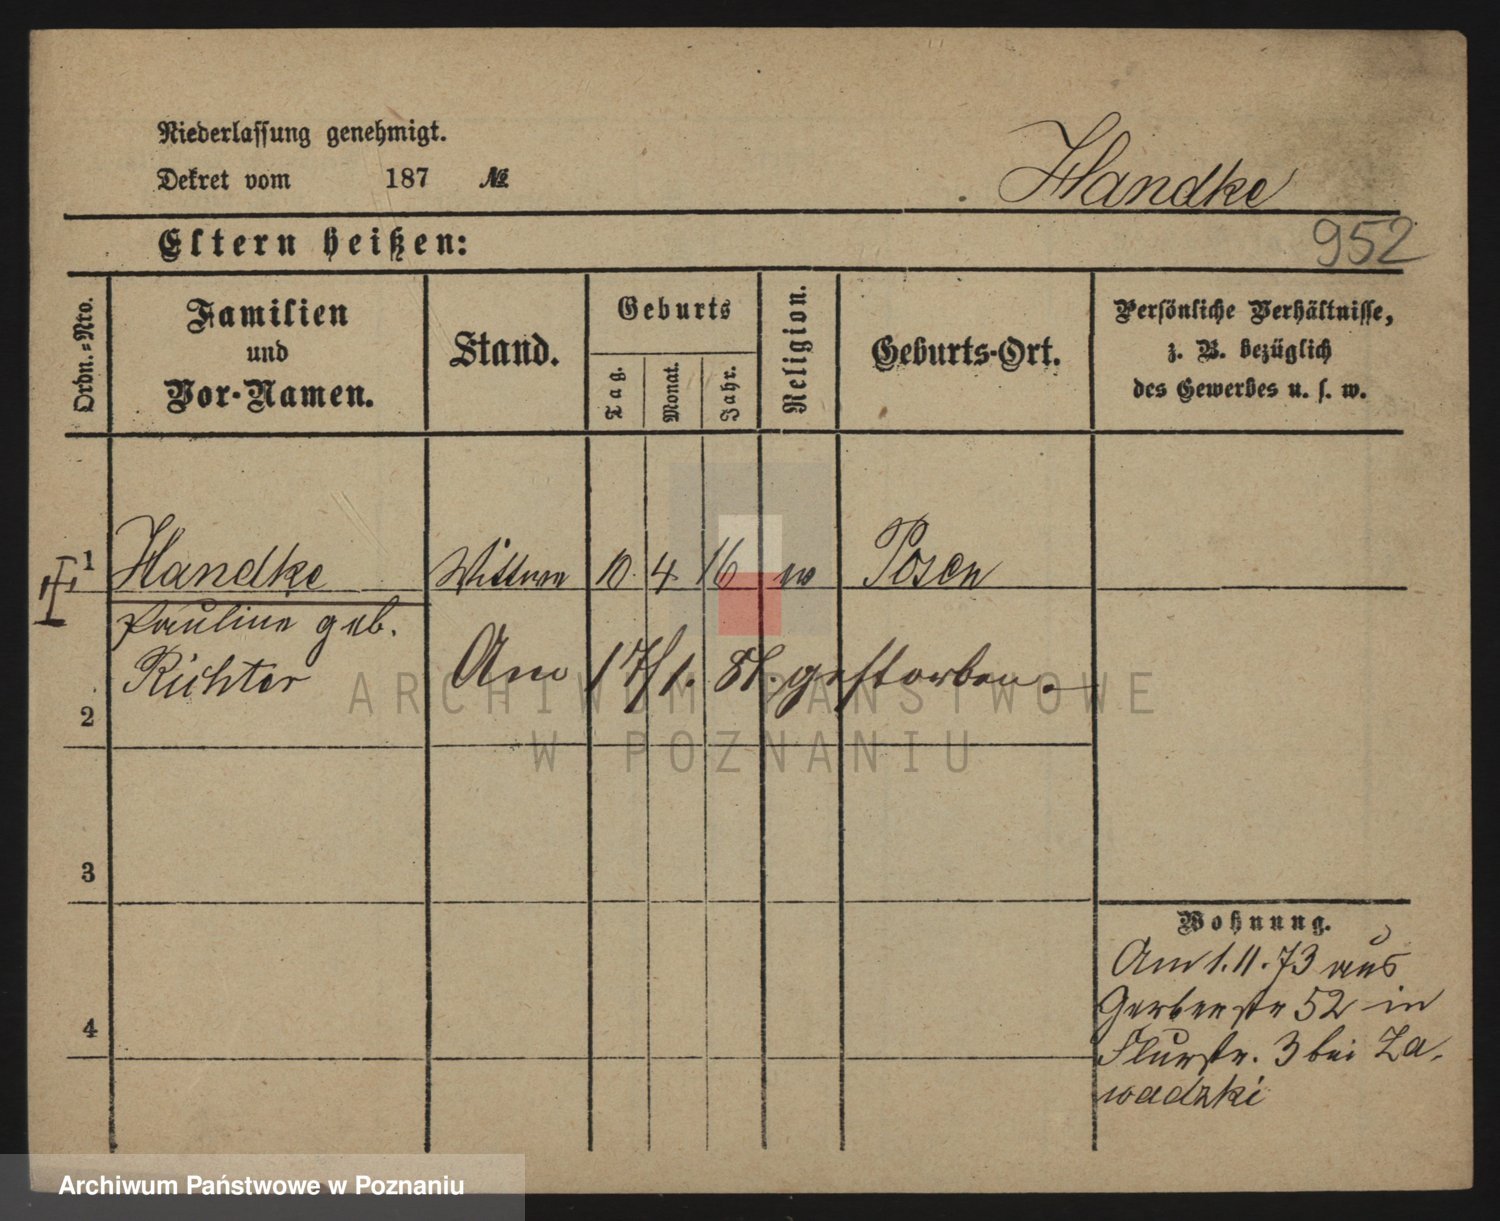 Niederlassung genehmigt.
Dekret vom 187 №
Handke
Eltern heißen:
952
Ordn.-Nro.
Familien
und
Vor-Namen.
Stand.
Geburts
Tag.
Monat.
Jahr.
Religion.
Geburts-Ort.
Persönliche Verhältnisse,
z. B. bezüglich
des Gewerbes u. s. w.
1 Handke Wittwe 10. 4. 16 Posen
Pauline geb.
Richter Am 17/1. 81. gestorben.
2
3
4
Wohnung.
Am 1.11.73 aus
Gerberstr 52 in
Flurstr. 3 bei Za-
wadzki
ARCHIWUM PAŃSTWOWE
W POZNANIU
Archiwum Państwowe w Poznaniu